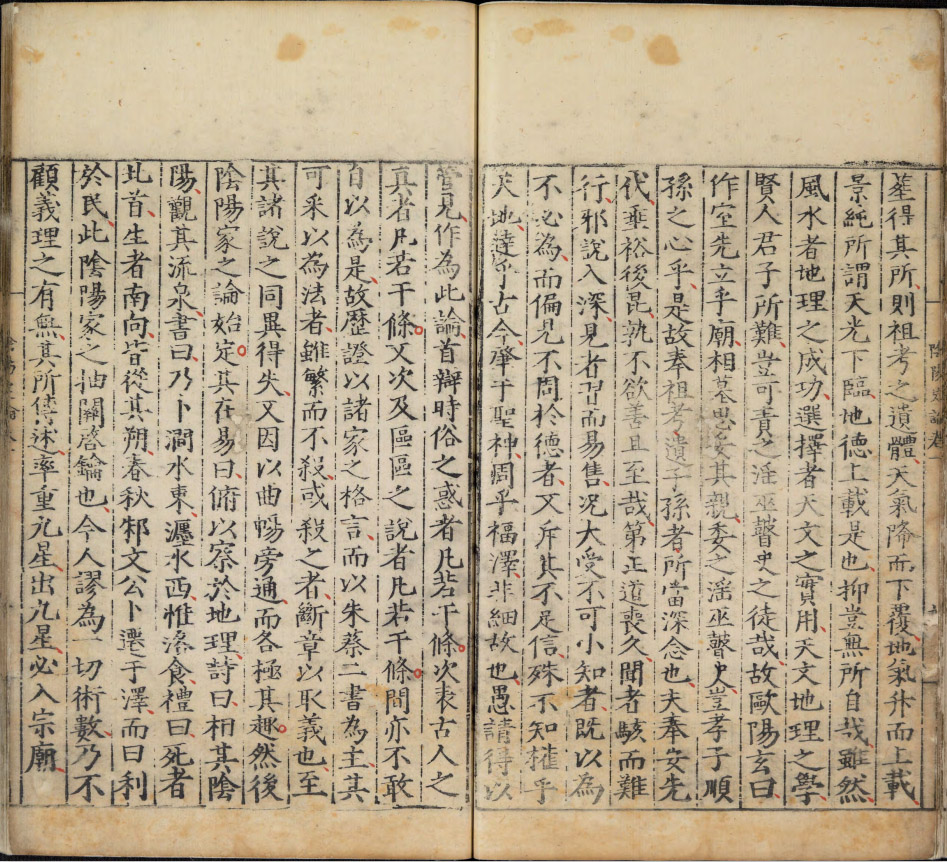 葬得其所則祖考之遺體天氣降而下覆地氣升而上載
景純所謂天光下臨地德上載是也抑豈無所自哉雖然
風水者地理之成功選擇者天文之實用天文地理之學
賢人君子所難豈可責之淫巫瞽史之徒哉故歐陽玄曰
作室先立乎廟相墓思安其親委之滛巫瞽史豈孝子順
孫之心乎是故奉祖考遺子孫者所當深念也夫奉安先
代垂裕後昆孰不欲善且至哉第正道喪久聞者駭而難
行邪說入深見者習而易售况大受不可小知者既以為
不必為而偏見不周於德者又斥其不足信殊不知權乎
天地達乎古今肇于聖神闗乎福澤非細故也愚請得以
管見作為此論首辯時俗之惑者凡若干條次表古人之
真者凡若干條又次及區區之說者凡若干條間亦不敢
自以為是故歷證以諸家之格言而以朱蔡二書為主其
可釆以為法者雖繁而不殺或殺之者斷章以取義也至
其諸說之同異得失又因以曲暢旁通而各極其趣然後
陰陽家之論始定其在易曰俯以察於地理詩曰相其陰
陽觀其流泉書曰乃卜澗水東瀍水西惟洛食禮曰死者
北首生者南向皆從其朔春秋邾文公卜遷于澤而曰利
於民此陰陽家之抽關啓鑰也今人謬為一切術數乃不
顧義理之有無其所傳述率重九星出九星必入宗廟